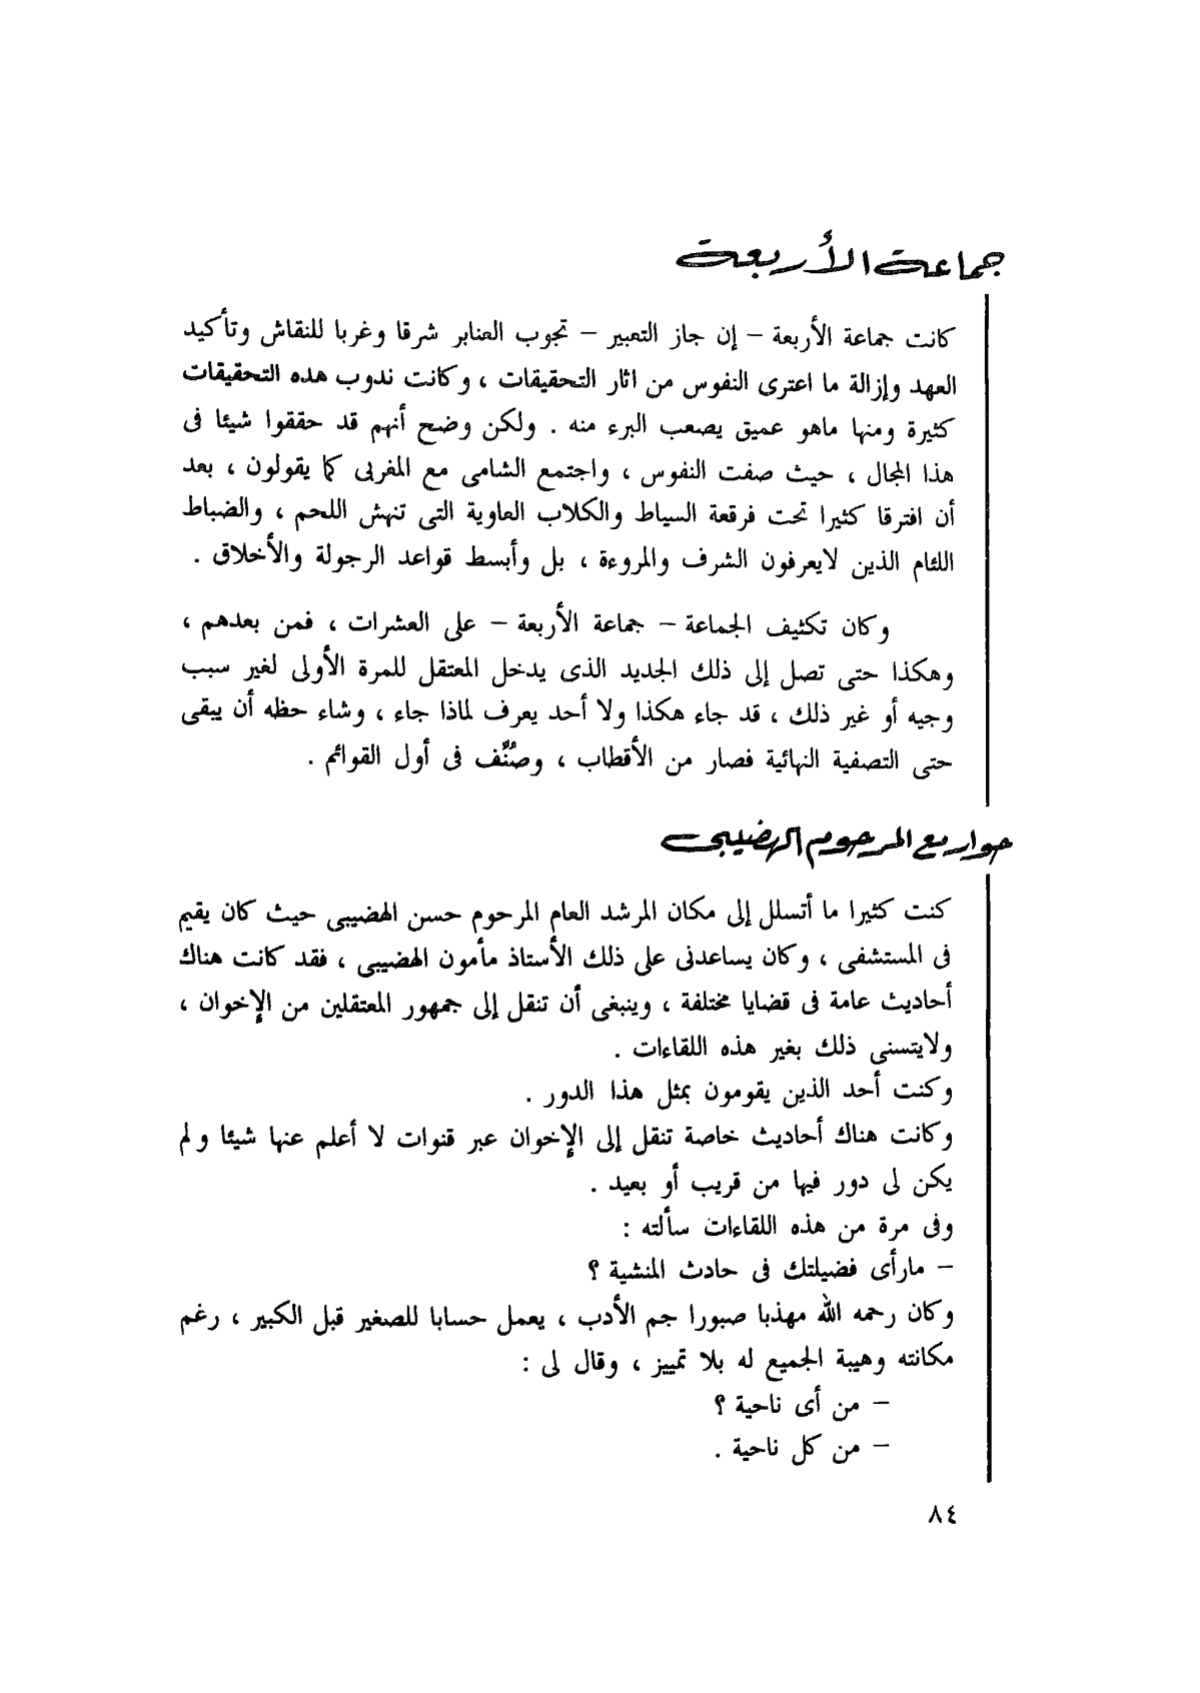 جماعة الأربعة
كانت جماعة الأربعة – إن جاز التعبير – تجوب العنابر شرقا وغربا للنقاش وتأكيد
العهد وإزالة ما اعترى النفوس من اثار التحقيقات ، وكانت ندوب هذه التحقيقات
كثيرة ومنها ماهو عميق يصعب البرء منه . ولكن وضح أنهم قد حققوا شيئا فى
هذا المجال ، حيث صفت النفوس ، واجتمع الشامى مع المغربى كما يقولون ، بعد
أن افترقا كثيرا تحت فرقعة السياط والكلاب العاوية التى تنهش اللحم ، والضباط
اللئام الذين لايعرفون الشرف والمروءة ، بل وأبسط قواعد الرجولة والأخلاق .
وكان تكثيف الجماعة – جماعة الأربعة – على العشرات ، فمن بعدهم ،
وهكذا حتى تصل إلى ذلك الجديد الذى يدخل المعتقل للمرة الأولى لغير سبب
وجيه أو غير ذلك ، قد جاء هكذا ولا أحد يعرف لماذا جاء ، وشاء حظه أن يبقى
حتى التصفية النهائية فصار من الأقطاب ، وصُنِّف فى أول القوائم .
حوار مع المرحوم الهضيبى
كنت كثيرا ما أتسلل إلى مكان المرشد العام المرحوم حسن الهضيبى حيث كان يقيم
فى المستشفى ، وكان يساعدنى على ذلك الأستاذ مأمون الهضيبى ، فقد كانت هناك
أحاديث عامة فى قضايا مختلفة ، وينبغى أن تنقل إلى جمهور المعتقلين من الإخوان ،
ولايتسنى ذلك بغير هذه اللقاءات .
وكنت أحد الذين يقومون بمثل هذا الدور .
وكانت هناك أحاديث خاصة تنقل إلى الإخوان عبر قنوات لا أعلم عنها شيئا ولم
يكن لى دور فيها من قريب أو بعيد .
وفى مرة من هذه اللقاءات سألته :
– مارأى فضيلتك فى حادث المنشية ؟
وكان رحمه الله مهذبا صبورا جم الأدب ، يعمل حسابا للصغير قبل الكبير ، رغم
مكانته وهيبة الجميع له بلا تمييز ، وقال لى :
– من أى ناحية ؟
– من كل ناحية .
٨٤